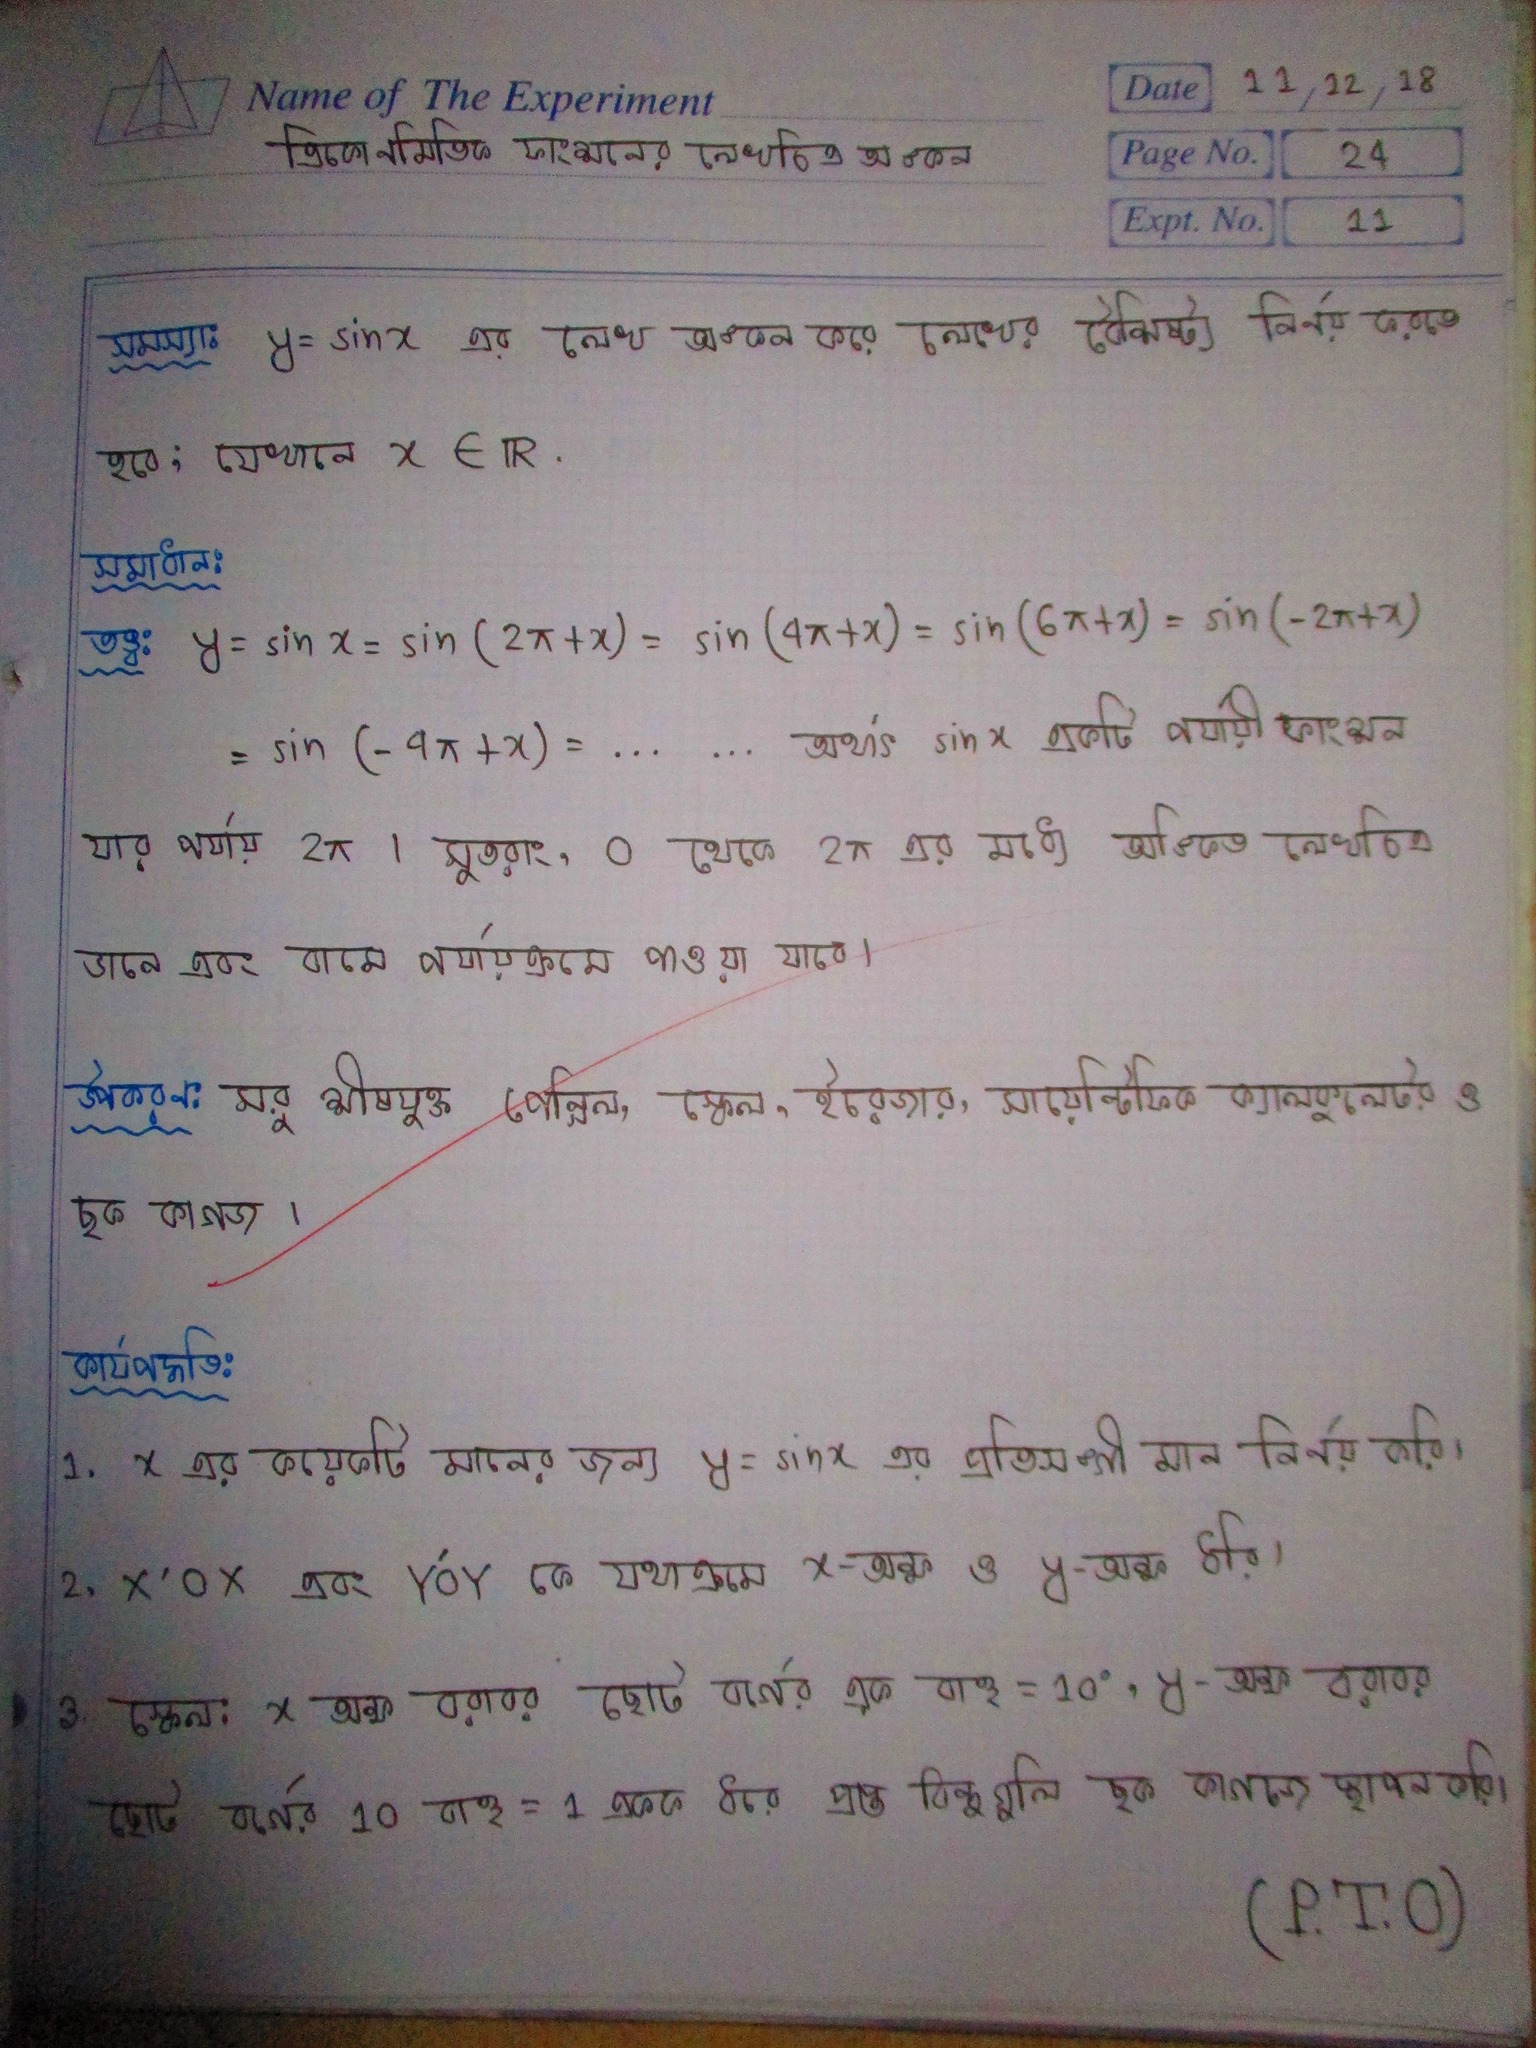 Name of The Experiment
Date 11/12/18
ত্রিকোণমিতিক ফাংশনের লেখচিত্র অংকন
Page No. 24
Expt. No. 11
সমস্যাঃ y = sinx এর লেখ অংকন করে লেখের বৈশিষ্ট্য নির্ণয় করতে
হবে; যেখানে x ∈ IR.
সমাধানঃ
তত্ত্বঃ y = sin x = sin (2π+x) = sin (4π+x) = sin (6π+x) = sin (-2π+x)
= sin (-4π+x) = ... ... অর্থাৎ sinx একটি পর্যায়ী ফাংশন
যার পর্যায় 2π । সুতরাং, 0 থেকে 2π এর মধ্যে অংকিত লেখচিত্র
ডানে এবং বামে পর্যায়ক্রমে পাওয়া যাবে।
উপকরণঃ সরু শীষযুক্ত পেন্সিল, স্কেল, ইরেজার, সায়েন্টিফিক ক্যালকুলেটর ও
ছক কাগজ ।
কার্যপদ্ধতিঃ
1. x এর কয়েকটি মানের জন্য y = sinx এর প্রতিসঙ্গী মান নির্ণয় করি।
2. X'OX এবং Y'OY কে যথাক্রমে x-অক্ষ ও y-অক্ষ ধরি।
3. স্কেলঃ x অক্ষ বরাবর ছোট বর্গের এক বাহু = 10°, y-অক্ষ বরাবর
ছোট বর্গের 10 বাহু = 1 একক ধরে প্রাপ্ত বিন্দুগুলি ছক কাগজে স্থাপন করি।
(P.T.O)